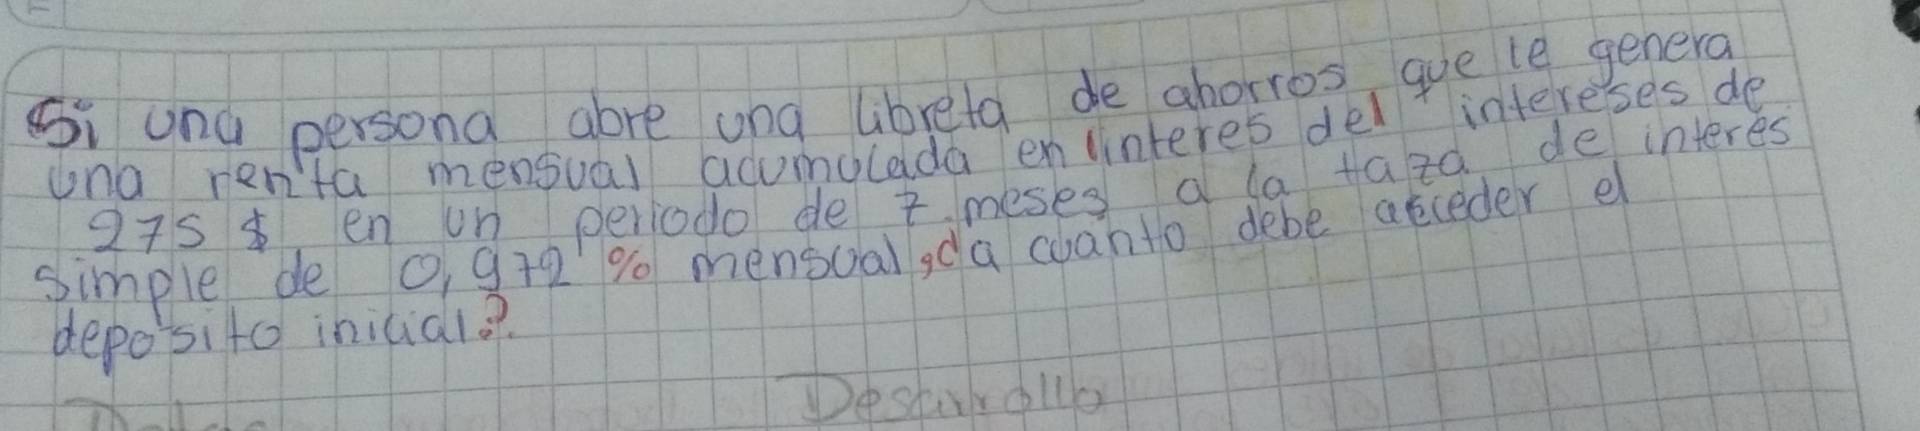 Si una persona abre una libreta de ahorros que le genera
una renta mensual acumulada en interes del intereses de
275 $ en un periodo de 7 meses a la taza de interes
simple de 0,972 % mensual, da cuanto debe acceder el
deposito inicial?
Desarrollo